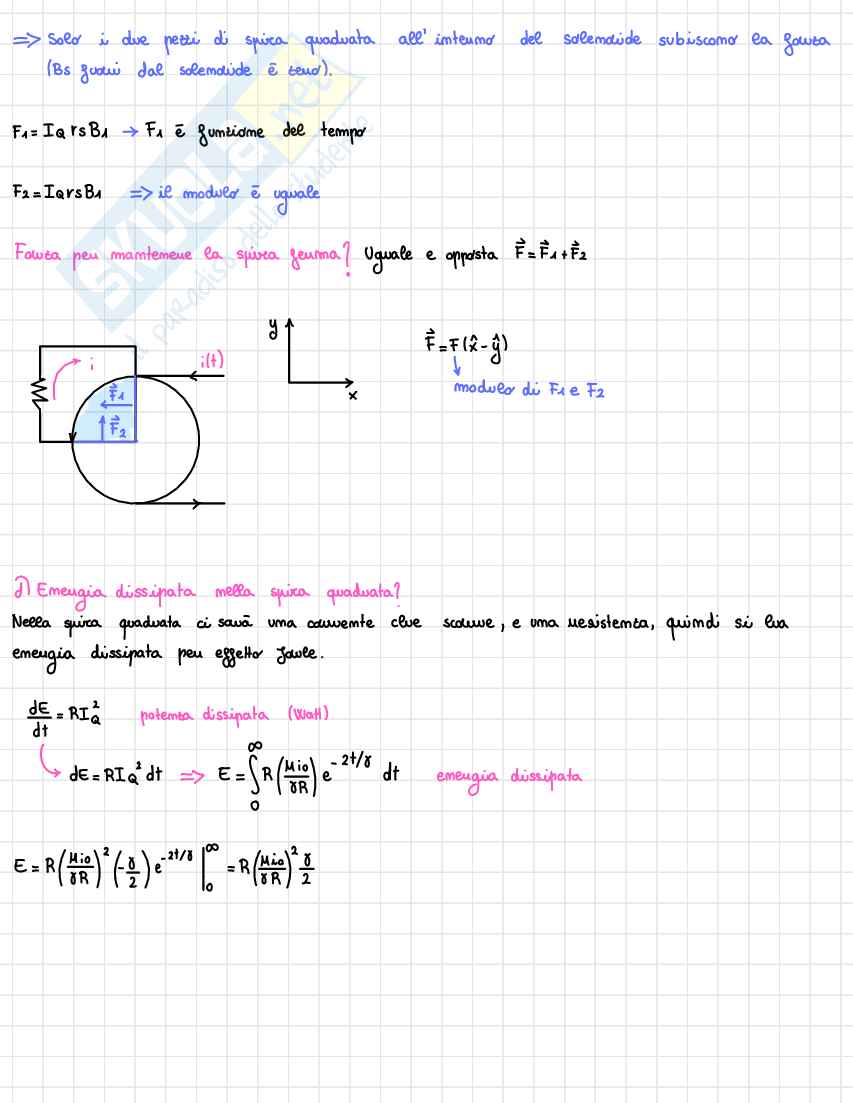 => Solo i due pezzi di spira quadrata all'interno del solenoide subiscono la forza
(Bs fuori dal solenoide è zero).
F1 = IQ rs B1 → F1 è funzione del tempo
F2 = IQ rs B1 => il modulo è uguale
Forza per mantenere la spira ferma? Uguale e opposta F⃗ = F⃗1 + F⃗2
y
x
F⃗ = F(x̂ - ŷ)
modulo di F1 e F2
i
i(t)
F⃗1
F⃗2
d) Energia dissipata nella spira quadrata?
Nella spira quadrata ci sarà una corrente che scorre, e una resistenza, quindi si ha
energia dissipata per effetto Joule.
dE/dt = RIQ² potenza dissipata (Watt)
dE = RIQ² dt => E = ∫₀^∞ R (Mio/γR) e^(-2t/γ) dt energia dissipata
E = R (Mio/γR)² (-γ/2) e^(-2t/γ) |₀^∞ = R (Mio/γR)² γ/2
SKUOLA.net
il paradiso dello studente